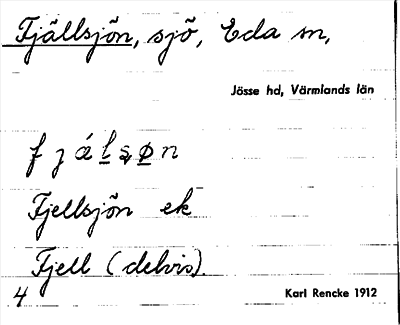 Fjällsjön, sjö, Eda sn,
Jösse hd, Värmlands län
f j á l s ø n
Fjellsjön ek
Fjell (delvis).
4
Karl Rencke 1912